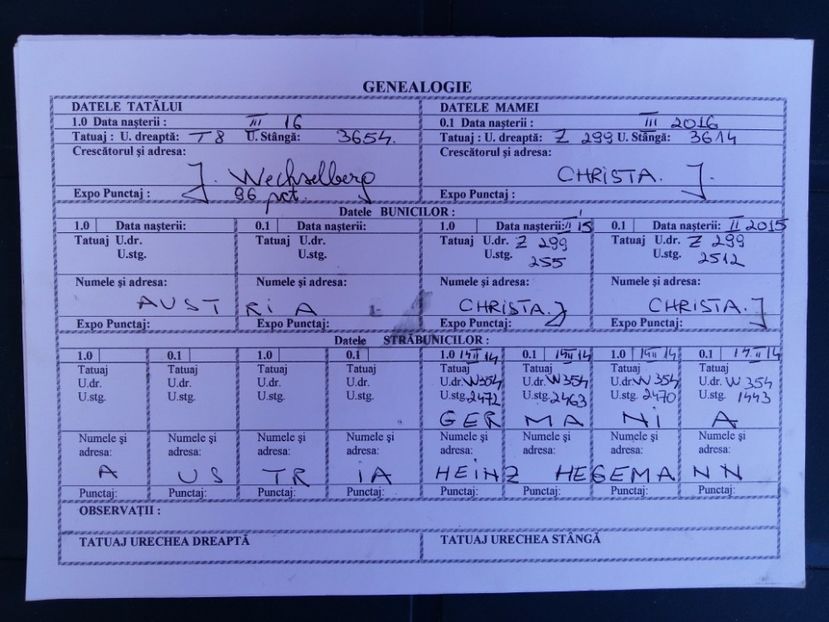 GENEALOGIE
DATELE TATĂLUI DATELE MAMEI
1.0 Data nașterii : III 16 0.1 Data nașterii : III 2016
Tatuaj : U. dreaptă: T8 U. Stângă: 3654. Tatuaj : U. dreaptă: Z 299 U. Stângă: 3614
Crescătorul și adresa: Crescătorul și adresa:
J. Wechselberg CHRISTA. J.
Expo Punctaj : 96 pct. Expo Punctaj :
Datele BUNICILOR :
1.0 Data nașterii: 0.1 Data nașterii: 1.0 Data nașterii: II 15 0.1 Data nașterii: II 2015
Tatuaj U.dr. Tatuaj U.dr. Tatuaj U.dr. Z 299 Tatuaj U.dr. Z 299
U.stg. U.stg. U.stg. 255 U.stg. 2512
Numele și adresa: Numele și adresa: Numele și adresa: Numele și adresa:
AUSTRIA CHRISTA. J CHRISTA. J
Expo Punctaj: Expo Punctaj: Expo Punctaj: Expo Punctaj:
Datele STRĂBUNICILOR :
1.0 0.1 1.0 0.1 1.0 14 II 14 0.1 14 II 14 1.0 14 II 14 0.1 14 II 14
Tatuaj Tatuaj Tatuaj Tatuaj Tatuaj Tatuaj Tatuaj Tatuaj
U.dr. U.dr. U.dr. U.dr. U.dr. W354 U.dr. W354 U.dr. W 354 U.dr. W 354
U.stg. U.stg. U.stg. U.stg. U.stg. 2472 U.stg. 2463 U.stg. 2470 U.stg. 1443
GERMANIA
Numele și Numele și Numele și Numele și Numele și Numele și Numele și Numele și
adresa: adresa: adresa: adresa: adresa: adresa: adresa: adresa:
AUSTRIA HEINZ HEGEMANN
Punctaj: Punctaj: Punctaj: Punctaj: Punctaj: Punctaj: Punctaj: Punctaj:
OBSERVAȚII :
TATUAJ URECHEA DREAPTĂ TATUAJ URECHEA STÂNGĂ